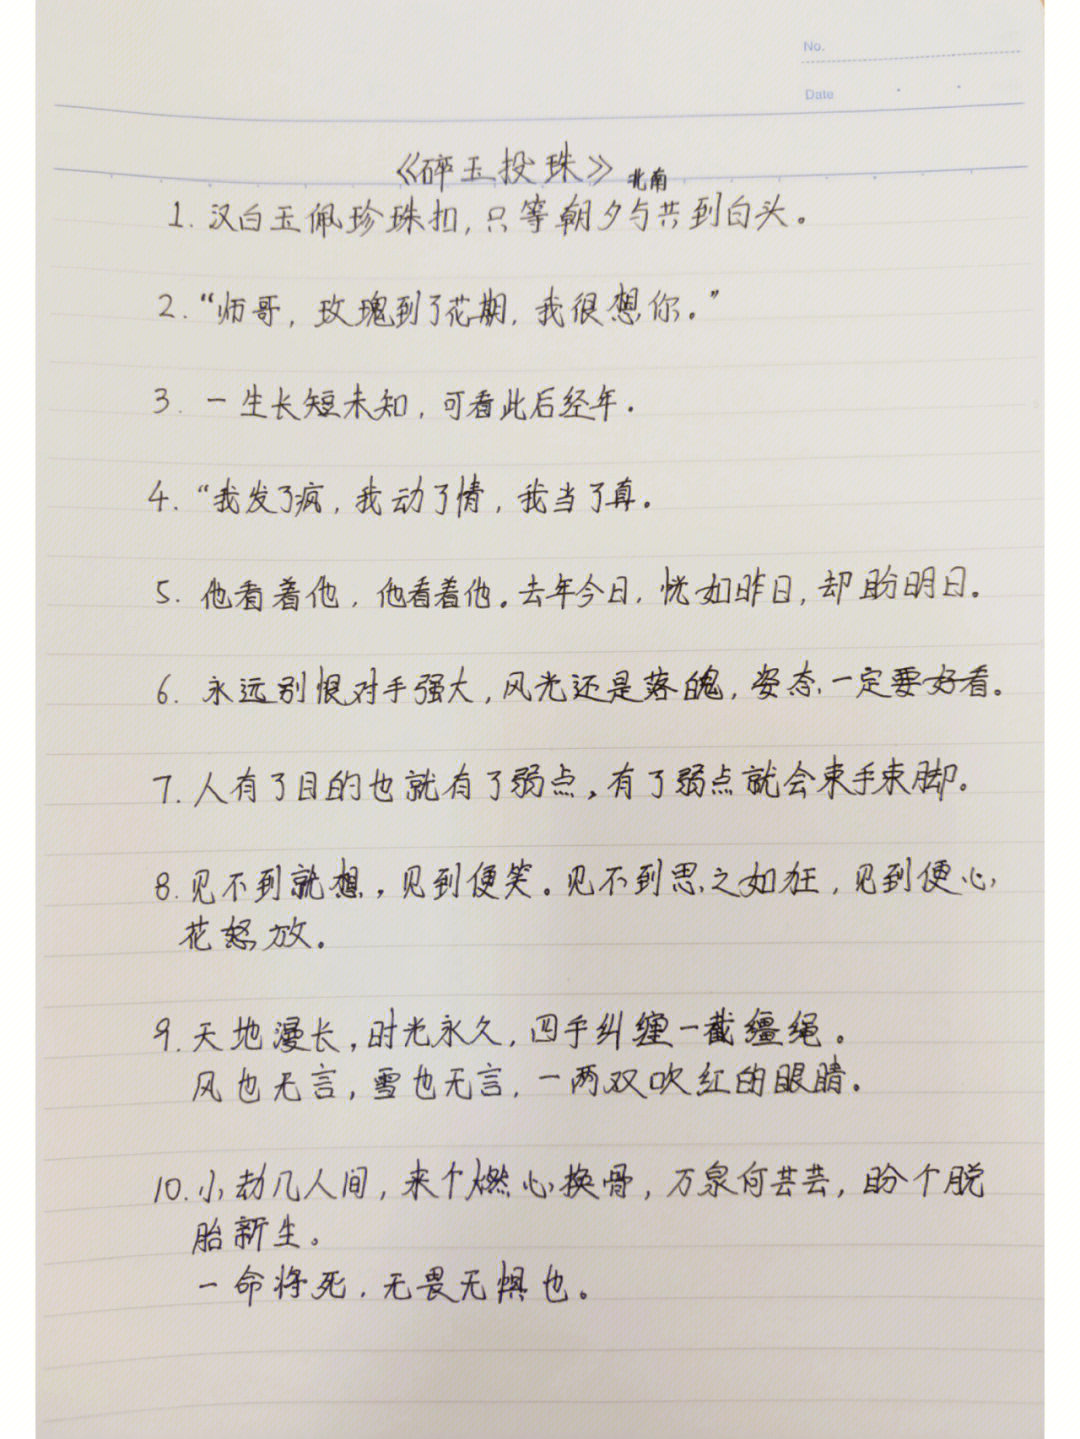 No.
Date
《碎玉投珠》 北南
1. 汉白玉佩珍珠扣，只等朝夕与共到白头。
2. “师哥，玫瑰到了花期，我很想你。”
3. 一生长短未知，可看此后经年.
4. “我发了疯，我动了情，我当了真。
5. 他看着他，他看着他。去年今日，恍如昨日，却盼明日。
6. 永远别恨对手强大，风光还是落魄，姿态一定要好看。
7. 人有了目的也就有了弱点，有了弱点就会束手束脚。
8. 见不到就想，见到便笑。见不到思之如狂，见到便心
花怒放。
9. 天地漫长，时光永久，四手纠缠一截缰绳。
风也无言，雪也无言，一两双吹红的眼睛。
10. 小劫几人间，来个燃心换骨，万泉何芸芸，盼个脱
胎新生。
一命将死，无畏无惧也。